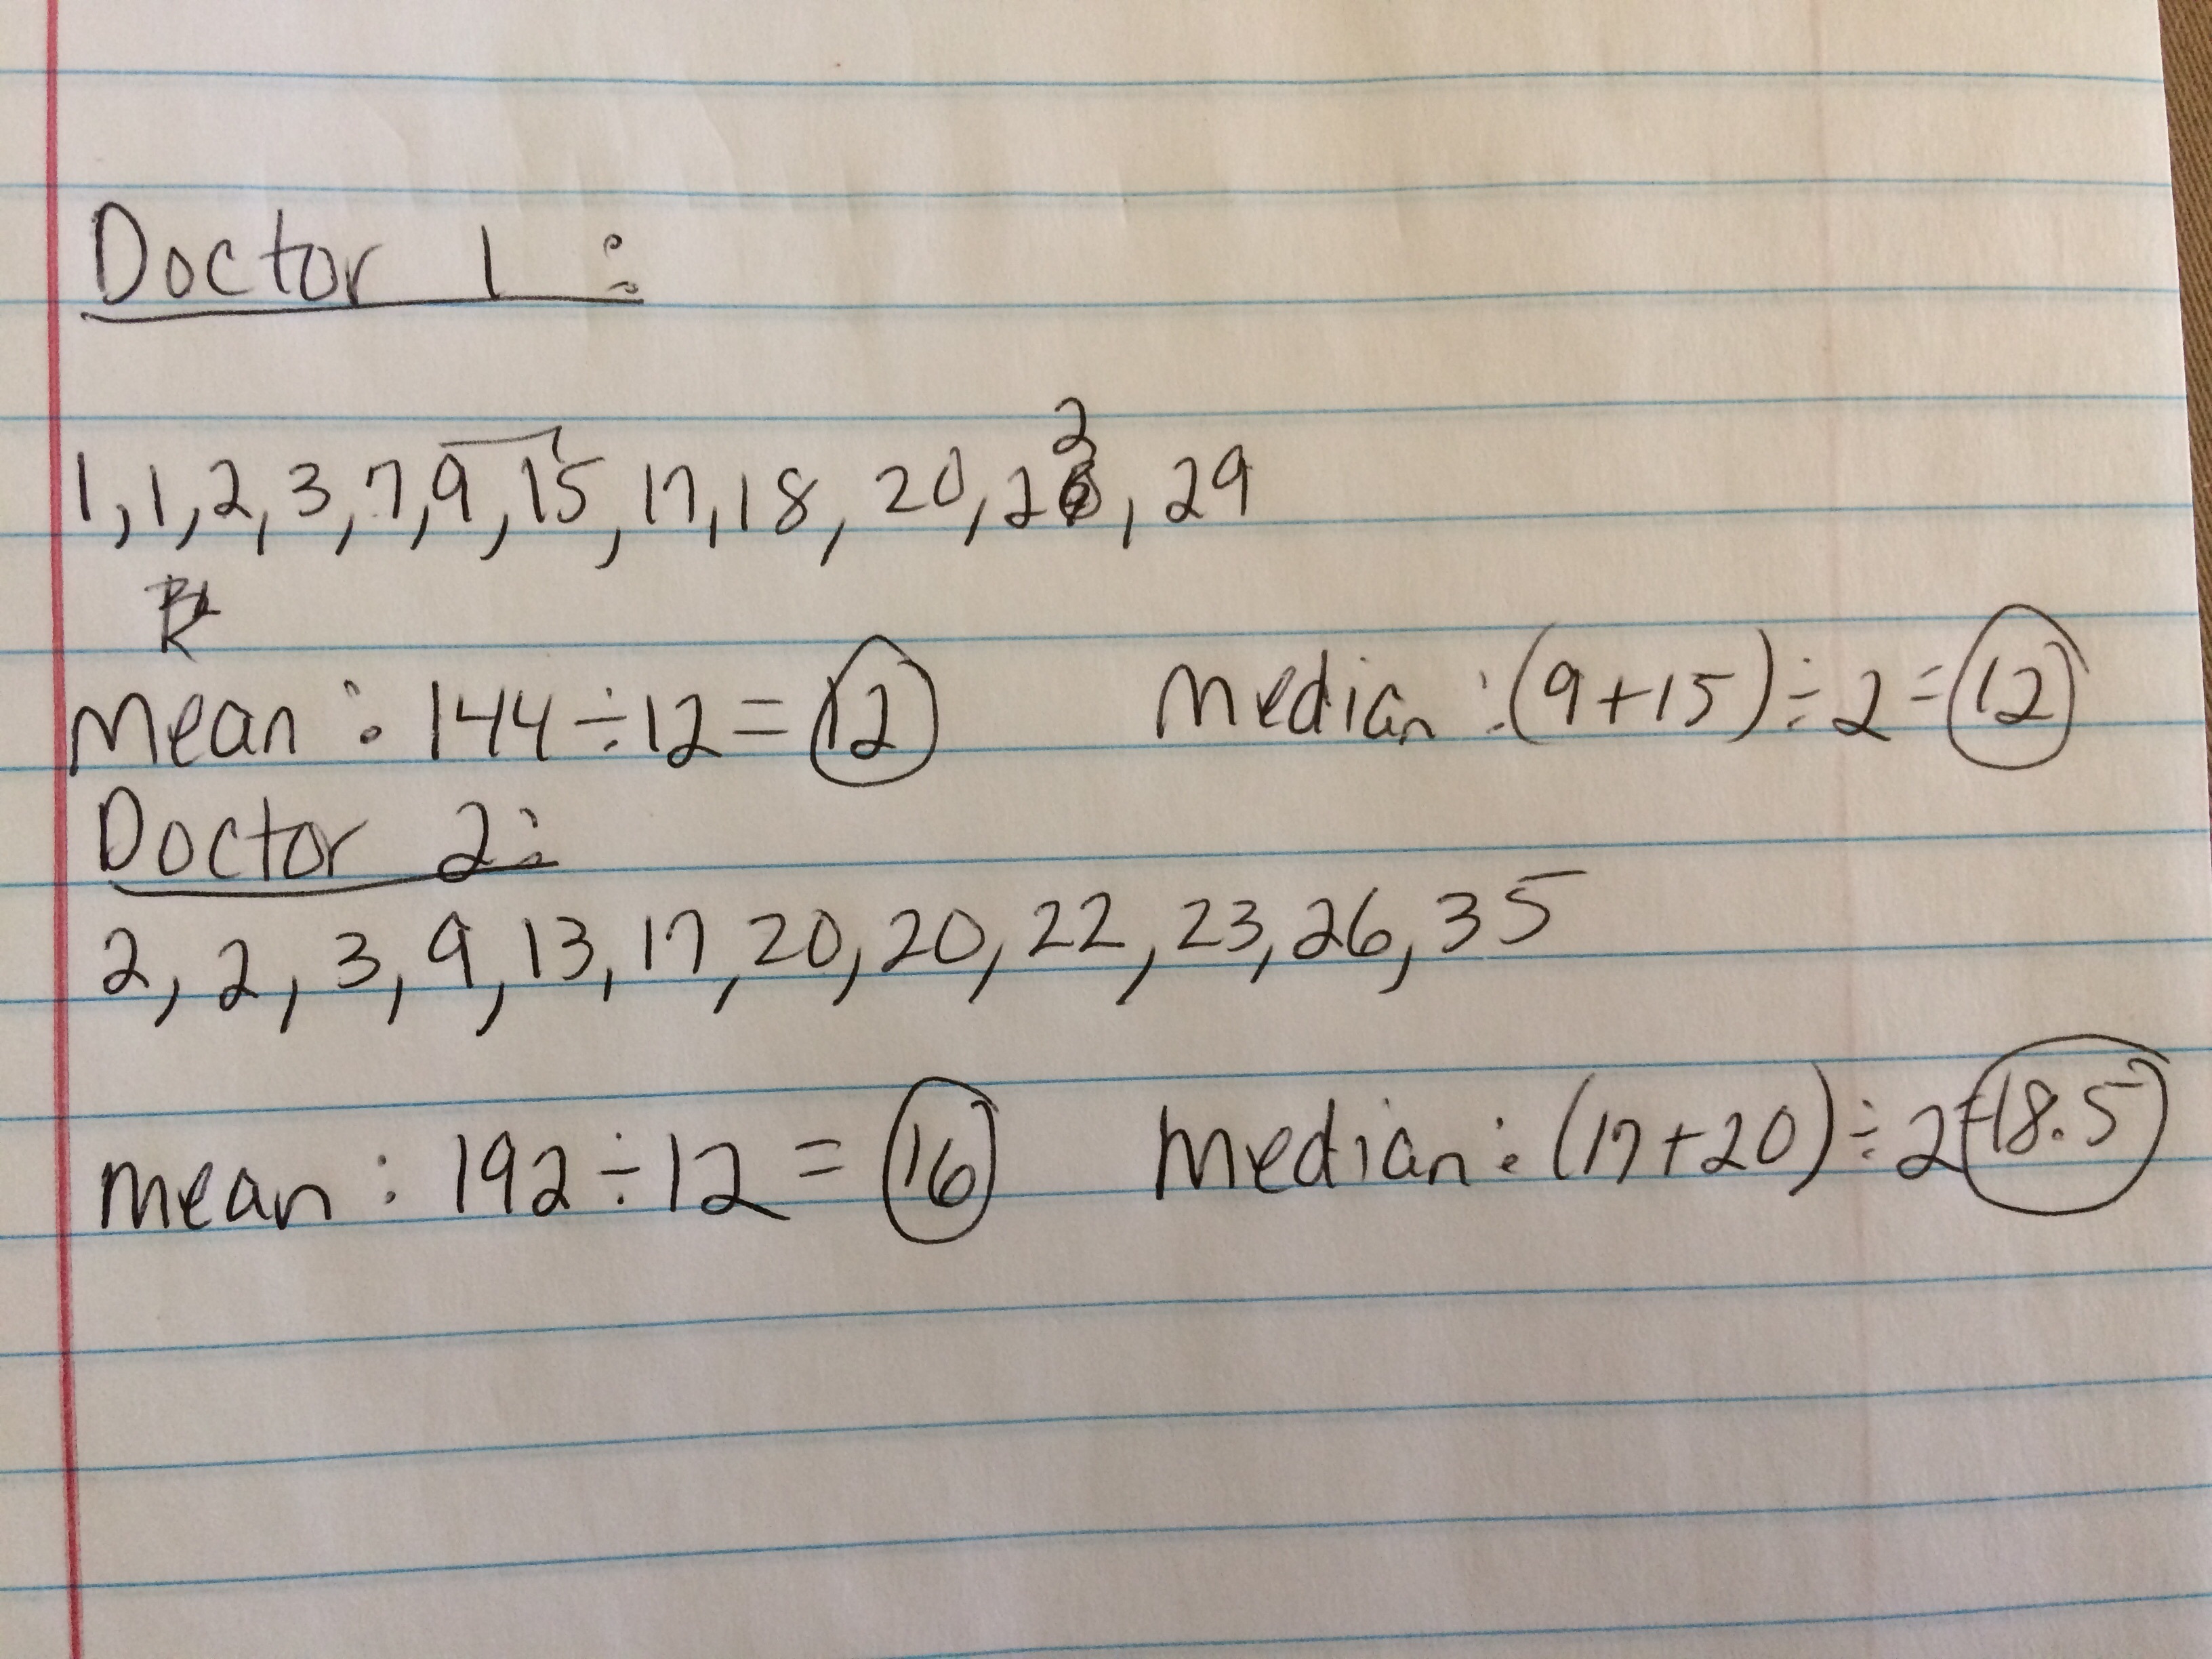 Doctor 1:
1, 1, 2, 3, 7, 9, 15, 17, 18, 20, 22, 29
Mean: 144 ÷ 12 = 12 Median: (9 + 15) ÷ 2 = 12
Doctor 2:
2, 2, 3, 9, 13, 17, 20, 20, 22, 23, 26, 35
Mean: 192 ÷ 12 = 16 Median: (17 + 20) ÷ 2 = 18.5